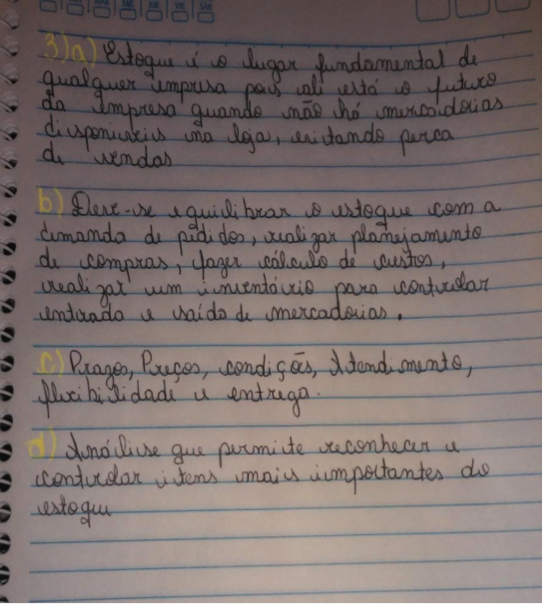 SÁB
3)a) Estoque é o lugar fundamental de
qualquer impresa pois ali está o futuro
da impresa quando não há mercadorias
disponíveis na loja, evitando perca
de vendas
b) Deve-se equilibrar o estoque com a
demanda de pedidos, realizar planejamento
de compras, fazer cálculo de custos,
realizar um inventário para controlar
entrada e saída de mercadorias.
c) Prazos, Preços, condições, Atendimento,
flexibilidade e entrega.
d) Análise que permite reconhecer e
controlar itens mais importantes do
estoque